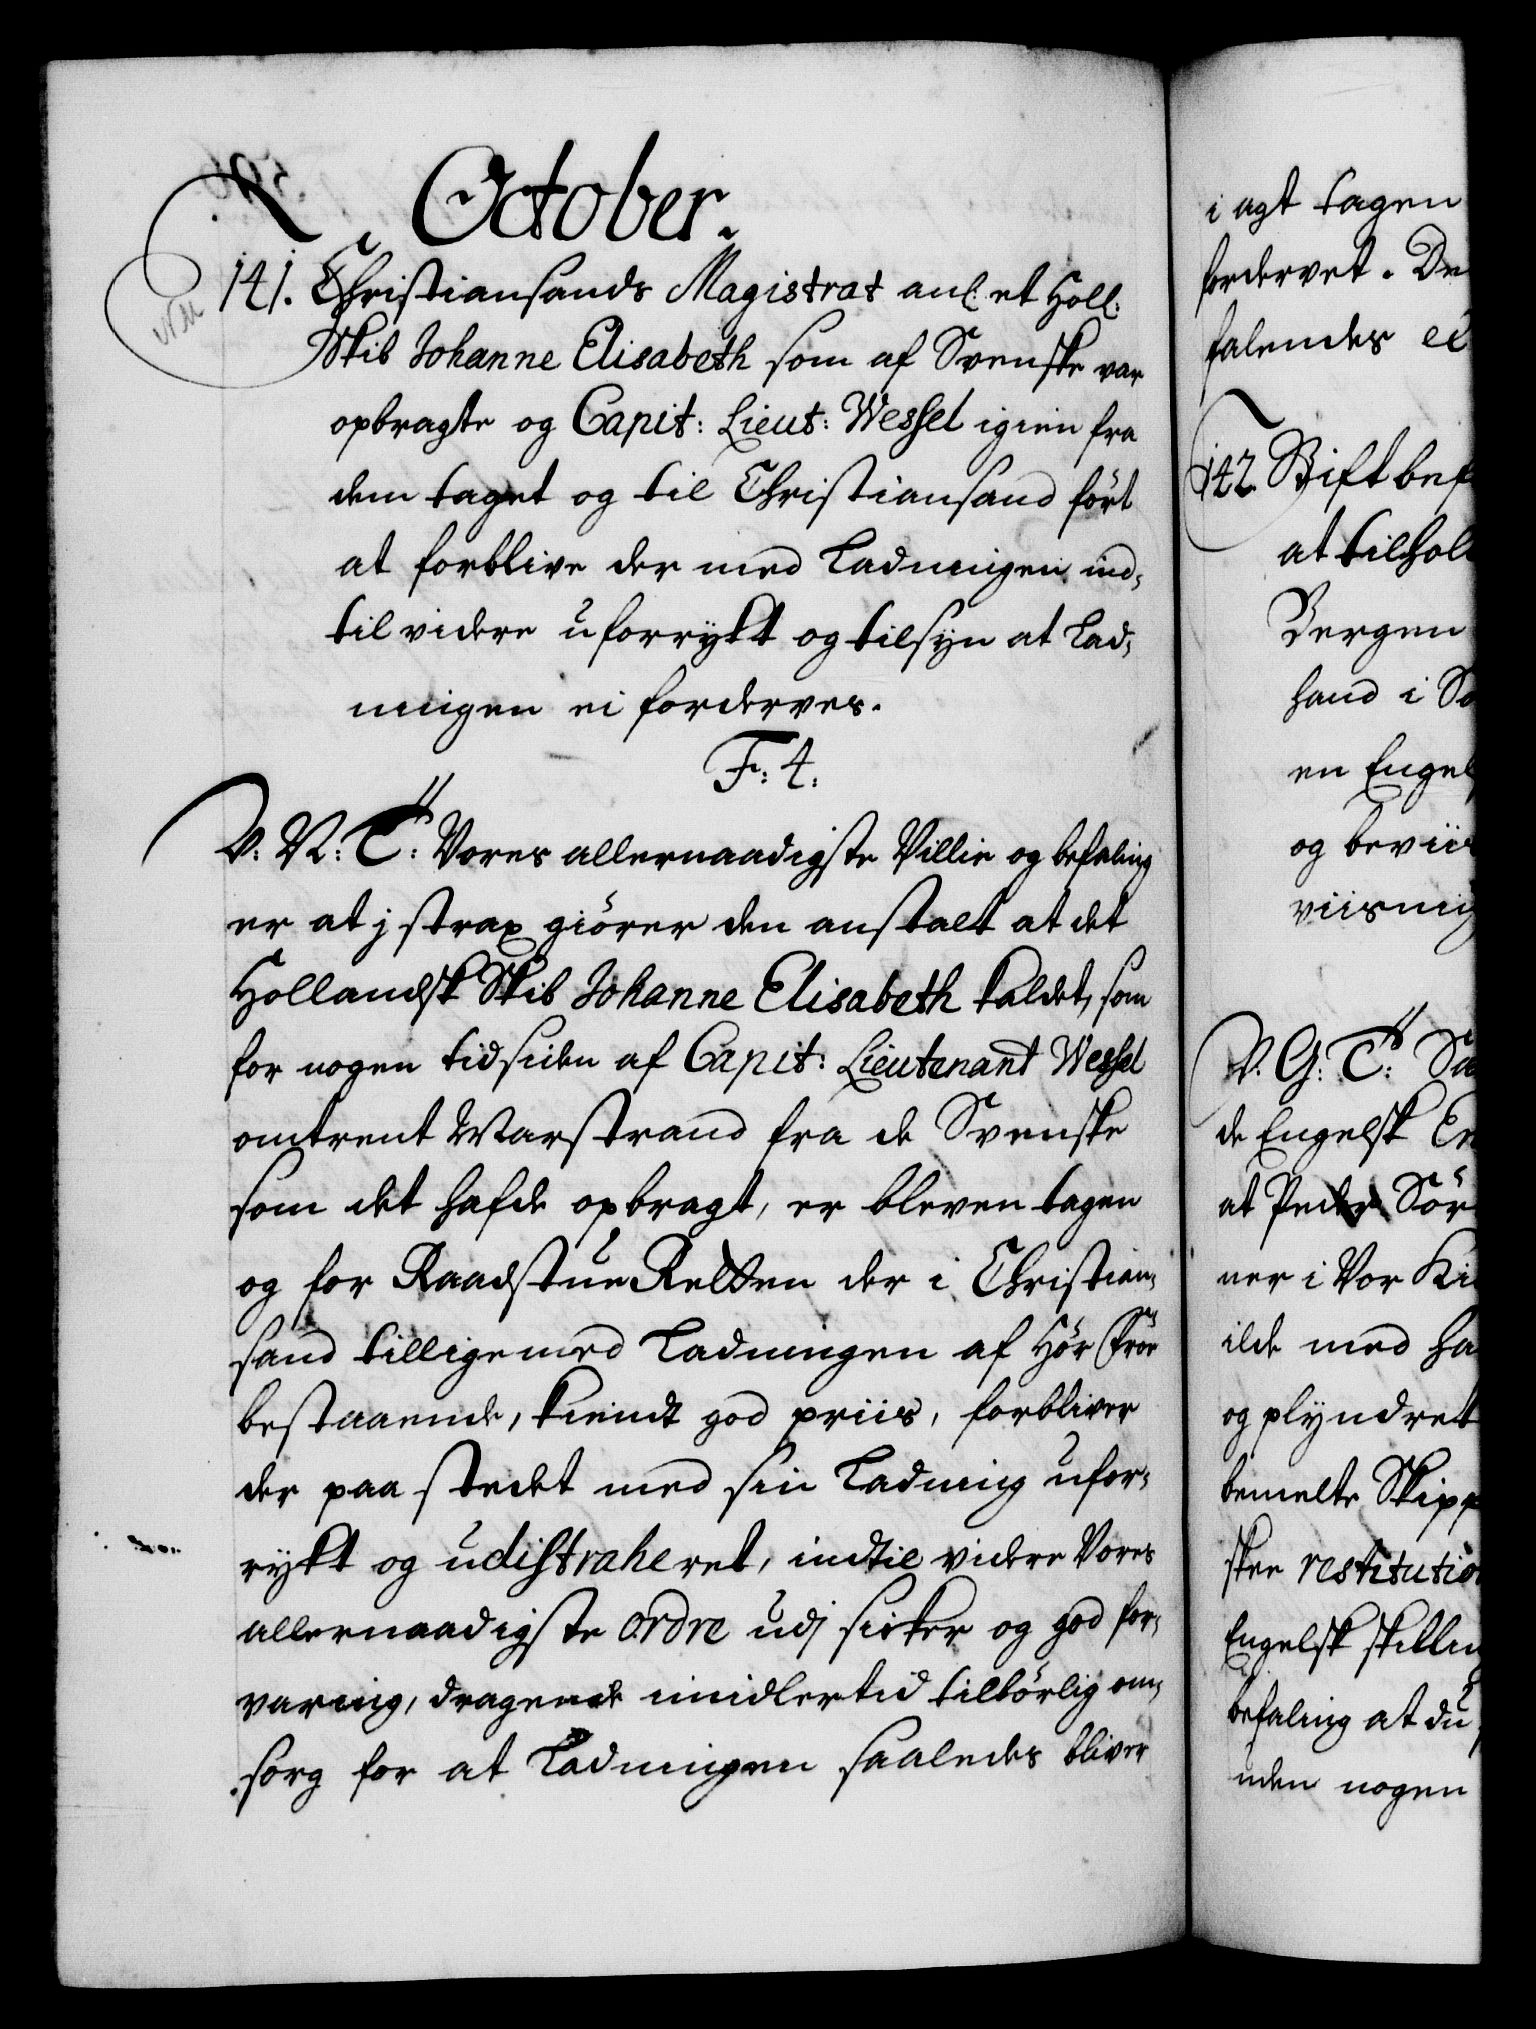 October.
141. Christiansands Magistrat anl. et Holl:
Skib Johanne Elisabeth som af Svenske var
opbragte og Capit: Lieut: Wessel igien fra
dem taget og til Christiansand ført
at forblive der med Ladningen ind-
til videre uforrykt og tilsyn at Lad-
ningen ei forderves.
F: 4:
V: N: T: Vores allernaadigste Villie og befaling
er at j strax giörer den anstalt at det
Hollandsk Skib Johanne Elisabeth kaldet, som
for nogen tid siden af Capit: Lieutenant Wessel
omtrent Marstrand fra de Svenske
som det hafde opbragt, er bleven tagen
og for Raadstue Retten der i Christian-
sand tilligemed Ladningen af Hör Fröe
bestaaende, kiendt god priis, forbliver
der paa stedet med sin Ladning ufor-
rykt og udistraheret, indtil videre Vores
allernaadigste ordre udj sicker og god for-
varing, dragende imidlertid tilbörlig om-
sorg for at Ladningen saaledes bliver
i agt tagen
fordervet. De
falendes
142. Stiftbef
at tilhol
Bergen
hand i
en Engel
og beviis
viisning
V. G: T:
de Engelsk
at Peder Sör
ner i Vor Ki
ilde med ha
og plyndret
bemelte Skipp
skee restitution
Engelsk skilling
befaling at du
uden nogen